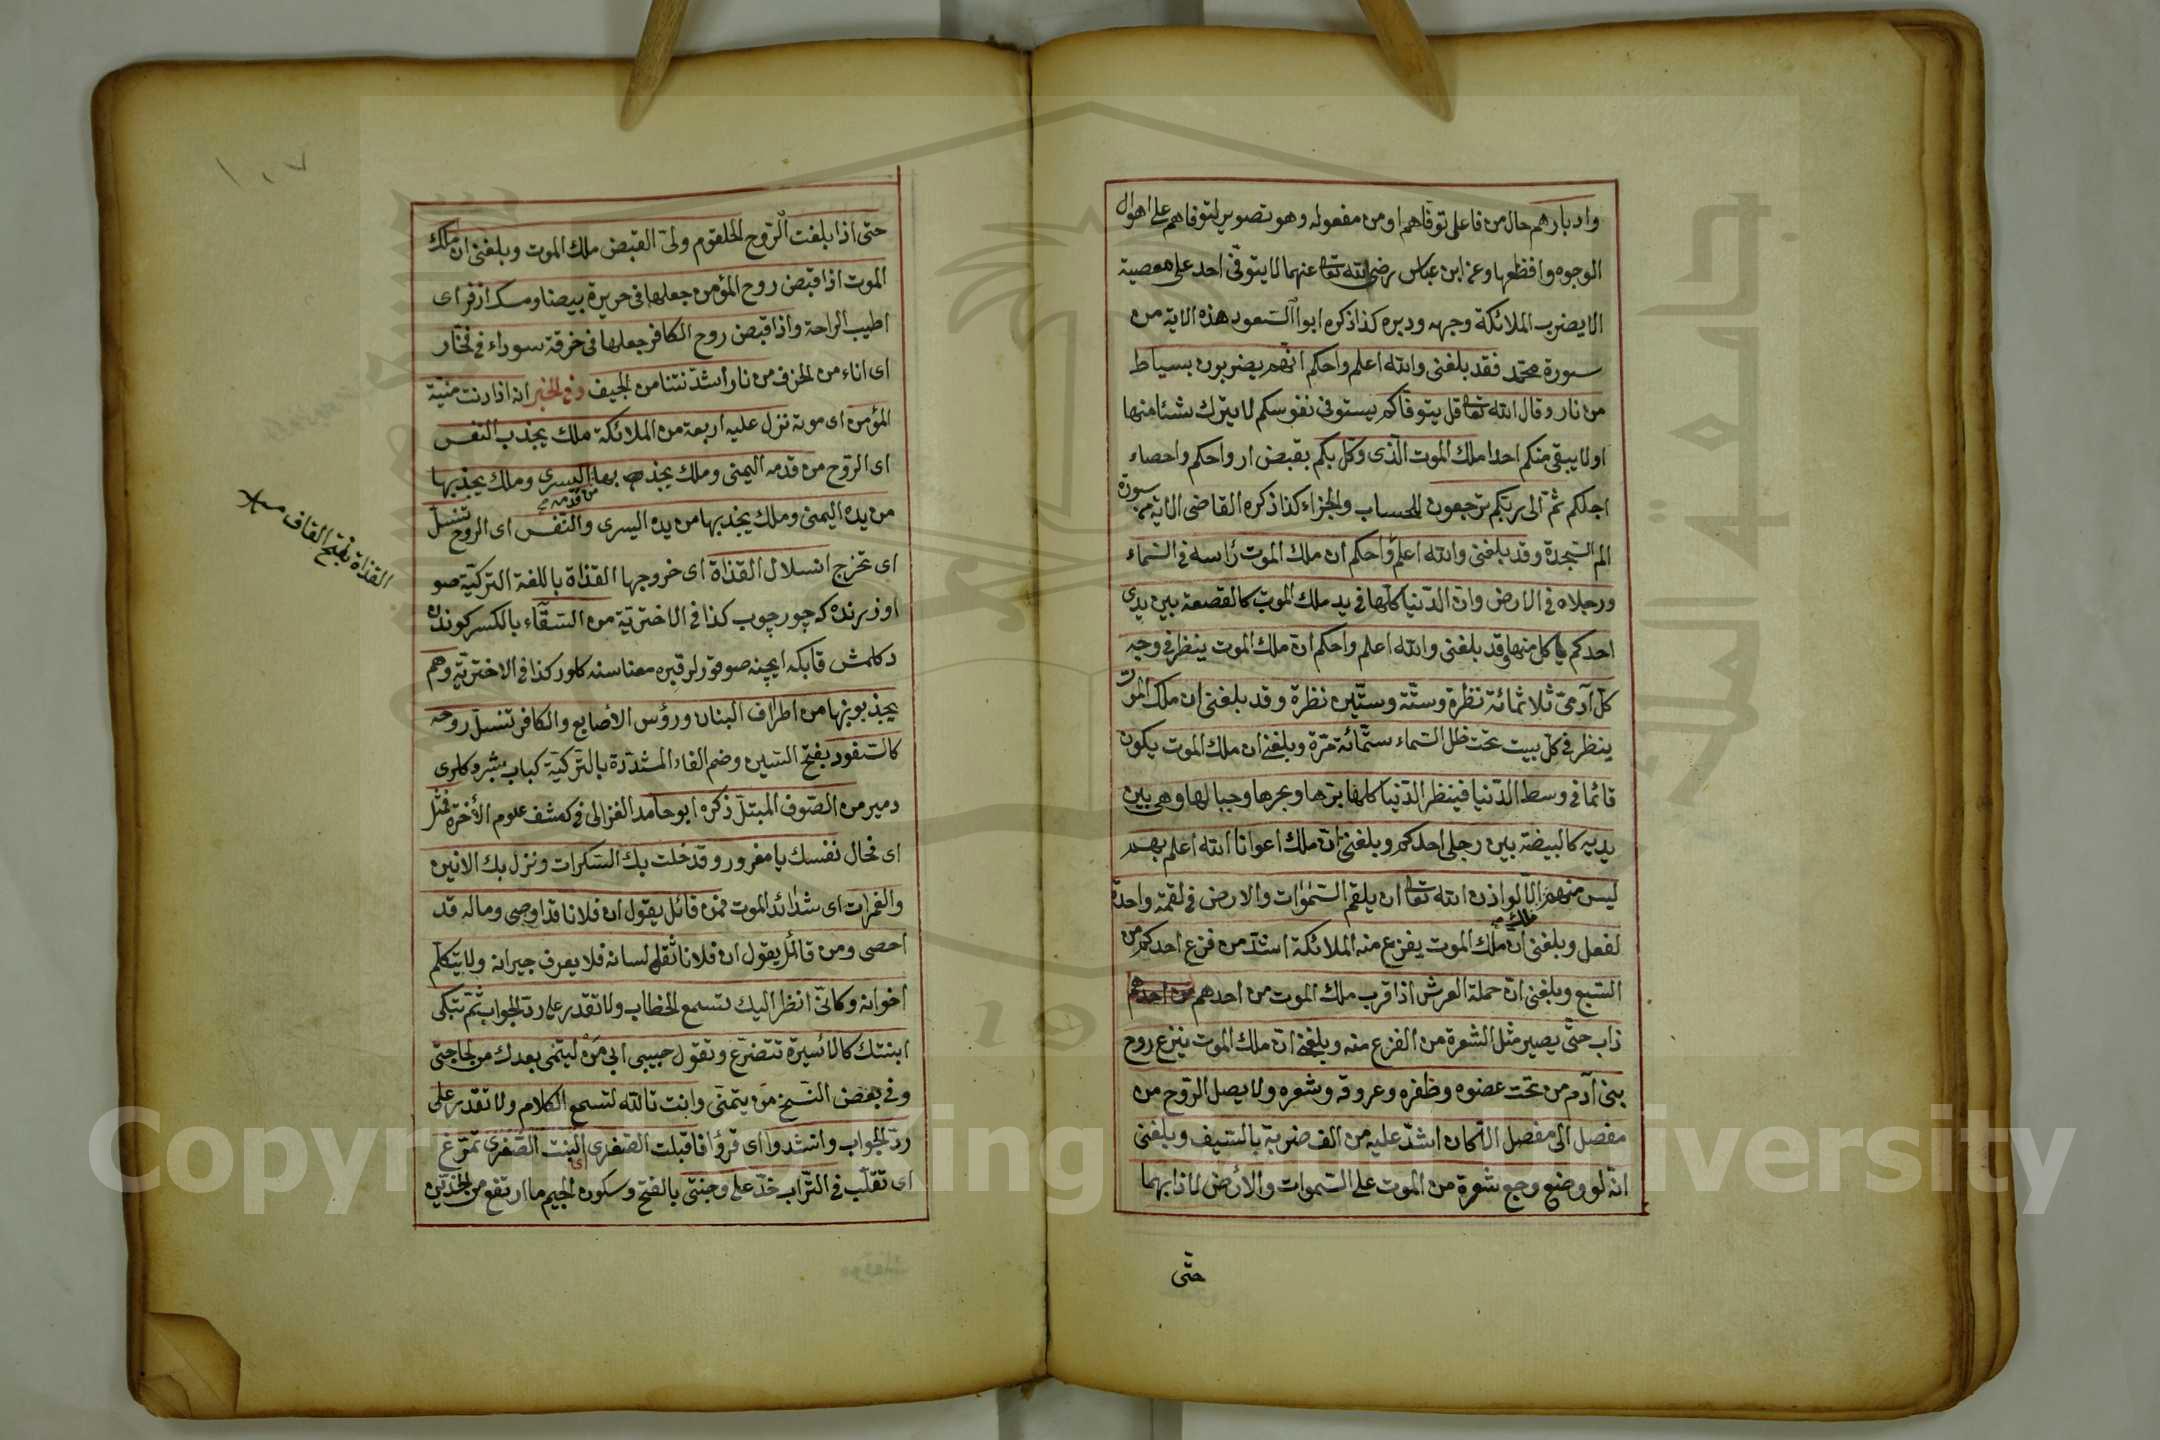 وادبارهم حال من فاعل توفاهم او من مفعوله وهو تصوير لتوفاهم على اهوال
الوجوه وافظعها وعن ابن عباس رضى الله تعا عنهما لا يتوفى احد على معصية
الا يضرب الملائكة وجهه ودبره كذا ذكره ابو السعود هذه الاية من
سورة محمد فقد بلغنى والله اعلم واحكم انهم يضربون بسياط
من نار وقال الله تعا قل يتوفاكم يستوفى نفوسكم لا يترك شيئا منها
اولا يبقى منكم احدا ملك الموت الذى وكل بكم بقبض ارواحكم واحصاء
اجلكم ثم الى ربكم ترجعون للحساب والجزاء كذا ذكره القاضى الاية من سورة
الم السجدة وقد بلغنى والله اعلم واحكم ان ملك الموت رأسه فى السماء
ورجلاه فى الارض وان الدنيا كلها فى يد ملك الموت كالقصعة بين يدى
احدكم يأكل منها وقد بلغنى والله اعلم واحكم ان ملك الموت ينظر فى وجه
كل آدمى ثلاثمائة نظرة وستة وستين نظرة وقد بلغنى ان ملك الموت
ينظر فى كل بيت تحت ظل السماء ستمائة مرة وبلغنى ان ملك الموت يكون
قائما فى وسط الدنيا فينظر الدنيا كلها برها وبحرها وجبالها وهى بين
يديه كالبيضة بين رجلى احدكم وبلغنى ان ملك اعوانا الله اعلم بهم
ليس منهم الا لو اذن الله تعا ان يلقم السموات والارض فى لقمة واحدة
لفعل وبلغنى ان ملك الموت يفزع منه الملائكة اشد من فزع احدكم من
السبع وبلغنى ان حملة العرش اذا قرب ملك الموت من احدهم من احدهم
ذاب حتى يصير مثل الشعرة من الفزع منه وبلغنى ان ملك الموت ينزع روح
بنى آدم من تحت عضوه وظفره وعروقه وشعره ولا يصل الروح من
مفصل الى مفصل الا كان اشد عليه من الف ضربة بالسيف وبلغنى
انه لو وضع وجع شعرة من الموت على السموات والارض لاذابهما
حتى
١٠٧
حتى اذا بلغت الروح الحلقوم ولى القبض ملك الموت وبلغنى ان ملك
الموت اذا قبض روح المؤمن جعلها فى حريرة بيضا ومسك اذفر اى
اطيب الراحة واذا قبض روح الكافر جعلها فى خرقة سوداء فى فخار
اى اناء من الخزف من نار أشد نتنا من الجيف وفى الخبر انه اذا دنت منية
المؤمن اى موته نزل عليه اربعة من الملائكة ملك يجذب النفس
اى الروح من قدمه اليمنى وملك يجذبها من قدمه اليسرى وملك يجذبها
من يده اليمنى وملك يجذبها من يده اليسرى والنفس اى الروح تنسل
اى تخرج انسلال القذاة اى خروجها القذاة باللغة التركية صو
اوزرنده كه چورچوب كذا فى الاخترية من السقاء بالكسر كونده
دكلمش قابكه ايچنه صو قورلر قيره معناسنه كلور كذا فى الاخترية وهم
يجذبونها من اطراف البنان ورؤس الأصابع والكافر تنسل روحه
كالسفود بفتح السين وضم الفاء المشددة بالتركية كباب
دمير من الصوف المبتل ذكره ابو حامد الغزالى فى كشف علوم الأخرة فمثل
اى فحال نفسك يا مغرور وقد خلت بك السكرات ونزل بك الانين
والغمرات اى شدائد الموت فمن قائل يقول ان فلانا قد اوصى وماله قد
احصى ومن قائل يقول ان فلانا ثقل لسانه فلا يعرف جيرانه ولا يتكلم
اخوانه وكانى انظر اليك تسمع الخطاب ولا تقدر على رد الجواب ثم تبكى
ابنتك كالأسيرة تتضرع وتقول حبيبى ابى من ليتمى بعدك من لحاجتى
وفى بعض النسخ من يتمنى وانت تالله لتسمع الكلام ولا تقدر على
رد الجواب وانشدوا اى قرؤا فاقبلت الصغرى اى البنت الصغرى تمرغ
اى تقلب فى التراب خد على وجنتى بالفتح وسكون الجيم ما ارتفع من الخدين
القذاة بفتح القاف
Copyright © King Saud University